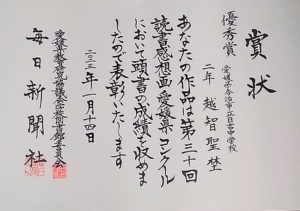 賞状
優秀賞
愛媛県今治市立日吉中学校
二年 越智聖埜
あなたの作品は第三十回
読書感想画愛媛県コンクール
において頭書の成績を収めま
したので表彰いたします
二〇二三年一月十四日
愛媛県教育研究協議会学校図書館委員会
毎日新聞社